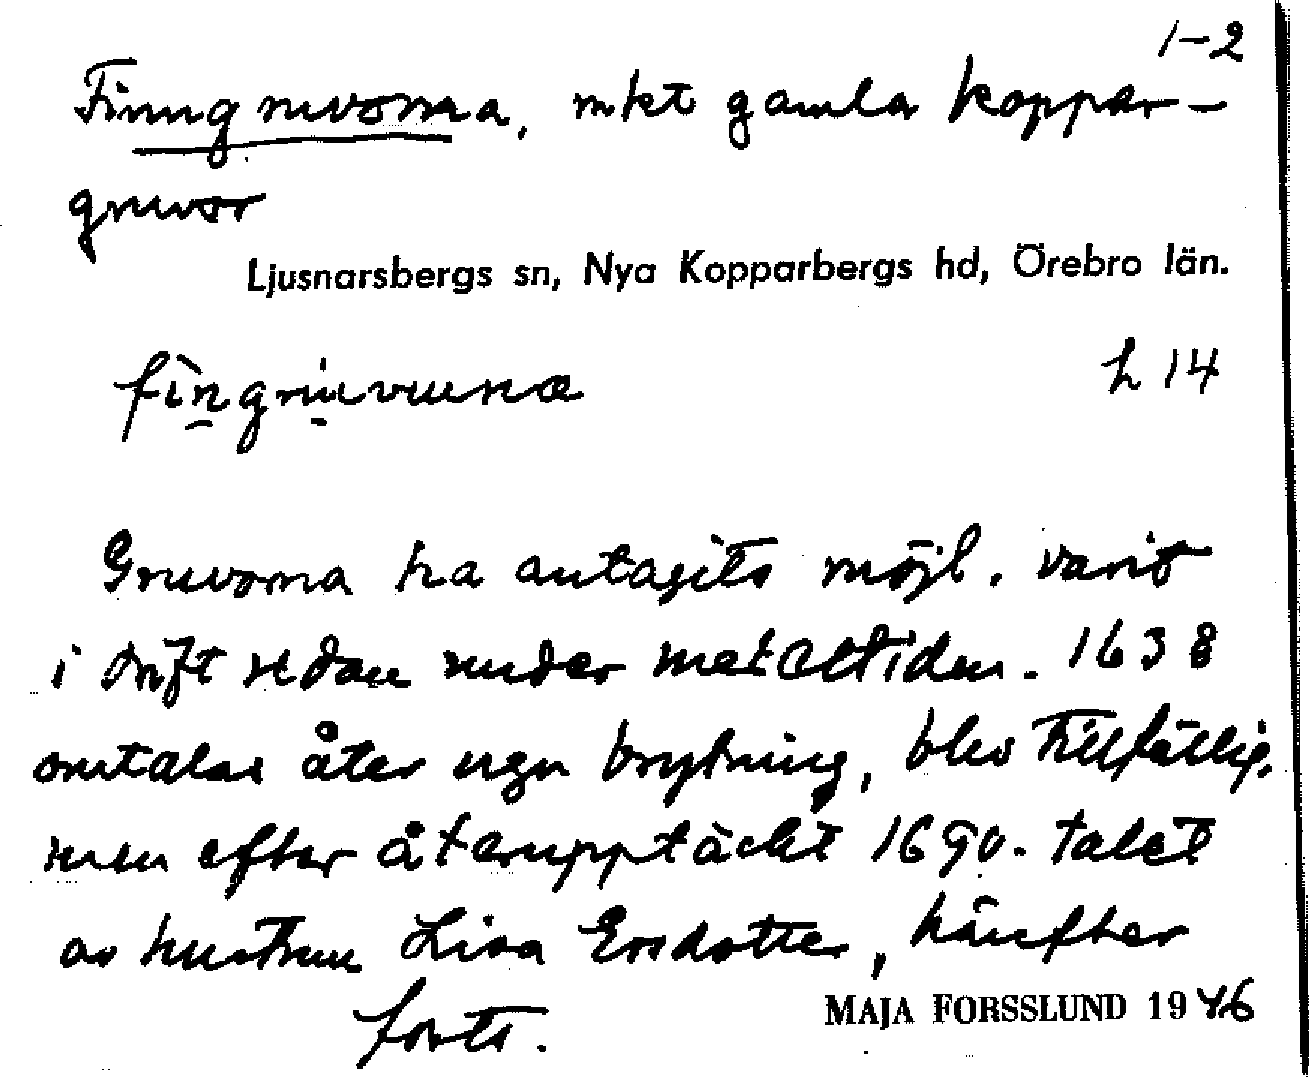 1-2
Finngruvorna, mkt gamla koppar-
gruvor
Ljusnarsbergs sn, Nya Kopparbergs hd, Örebro län.
fingruvuna
h 14
Gruvorna ha antagits möjl. varit
i drift redan under metalltiden. 1638
omtalas åter ngn brytning, blev tillfällig,
men efter återupptäckt 1690-talet
av hustrun Lisa Ersdotter, härefter
forts.
MAJA FORSSLUND 1946